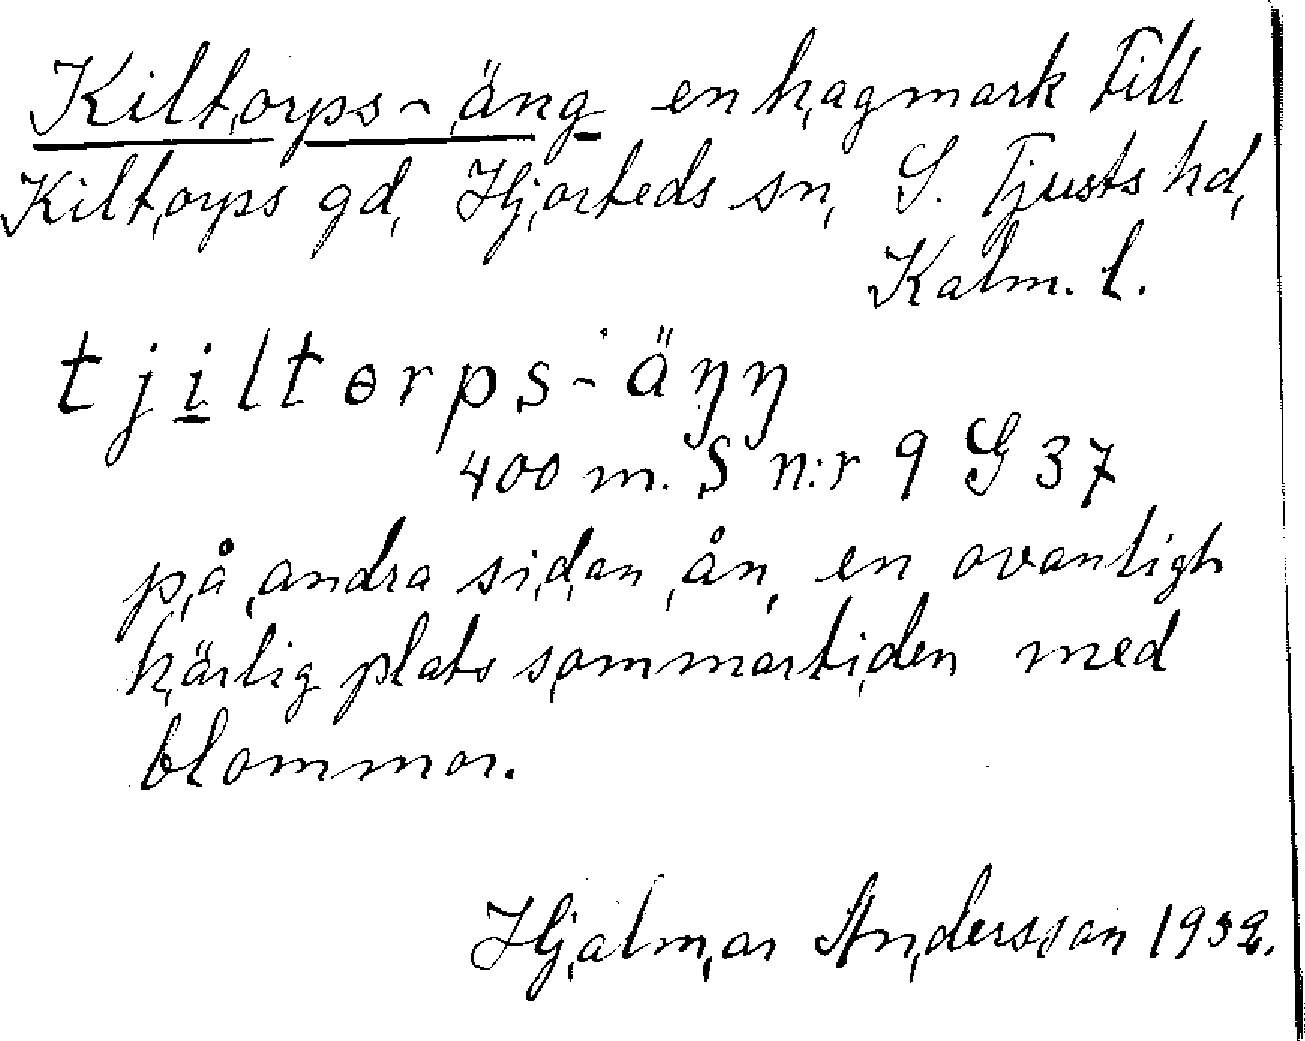 Kiltorps-äng en hagmark till
Kiltorps gd, Hjorteds sn, S. Tjusts hd,
Kalm. l.
tjiltɵrps-äŋŋ
400 m. S n:r 9 G 37
på andra sidan ån, en ovanligh
härlig plats sommartiden med
blommor.
Hjalmar Andersson 1932.